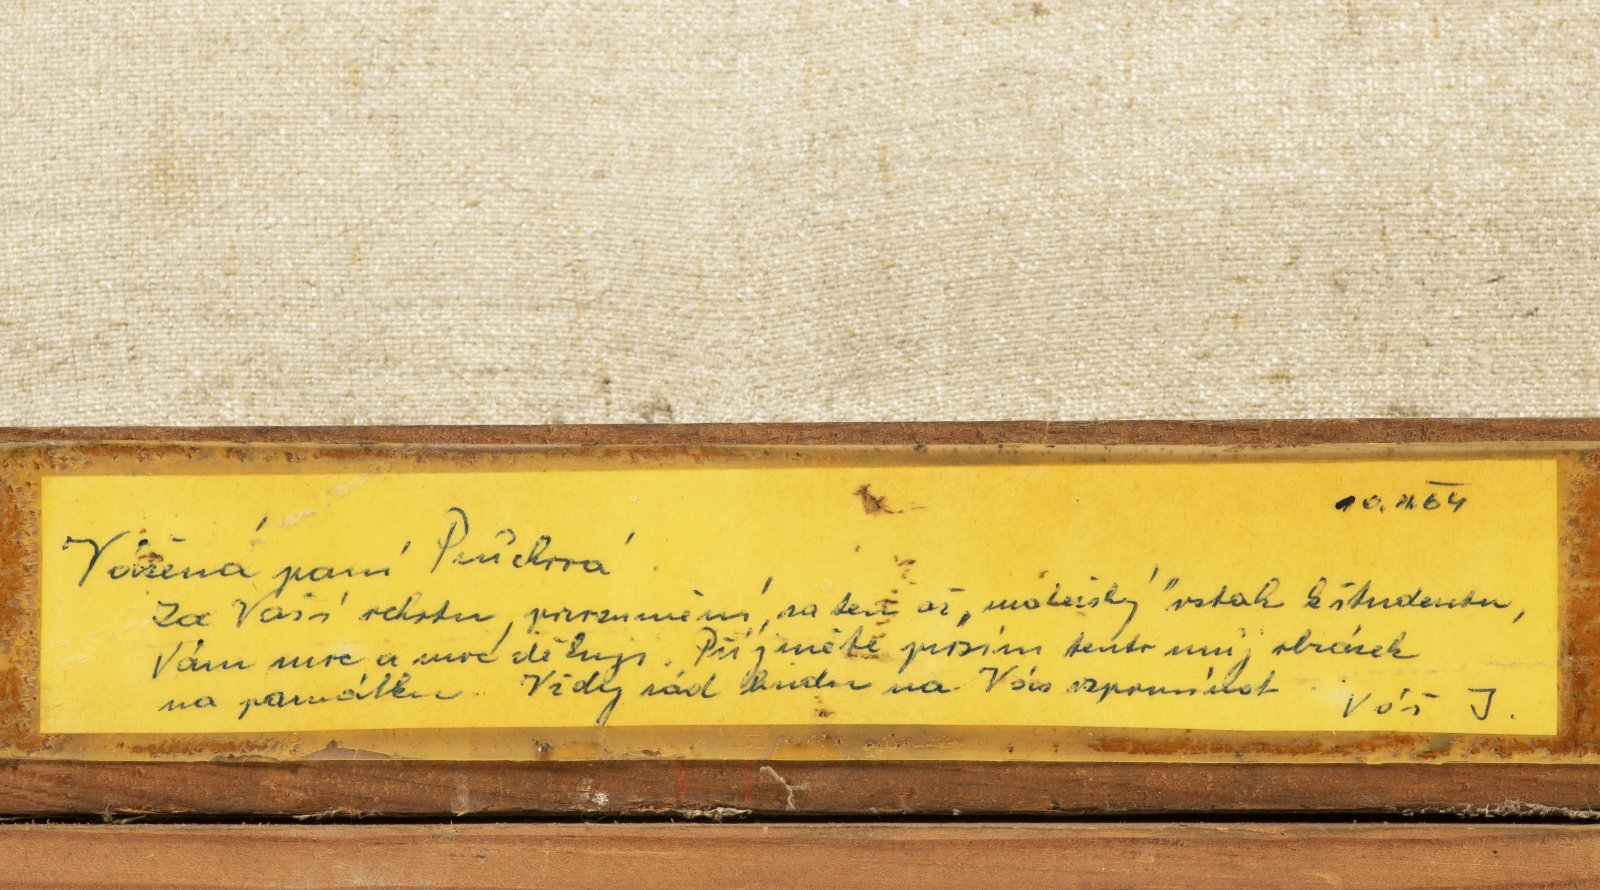 10. II 64
Vážená paní Průchová
Za Vaší ochotu, porozumění, za ten až „mateřský" vztah k študentu,
Vám moc a moc děkuji. Přijměte prosím tento můj obrázek
na památku. Vždy rád budu na Vás vzpomínat. Váš J.